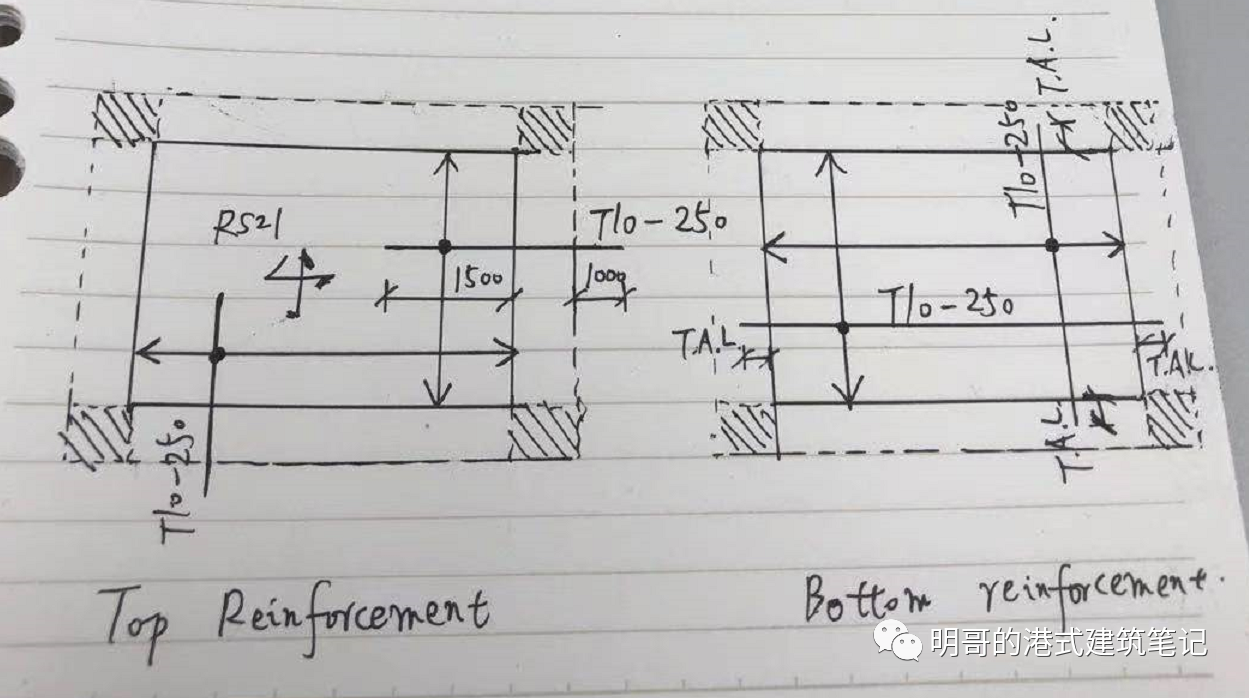 RS21
T10-250
1500
1000
T10-250
Top Reinforcement
T.A.L.
T10-250
T10-250
T.A.L.
T.A.L.
T.A.L
Bottom reinforcement.
明哥的港式建筑笔记